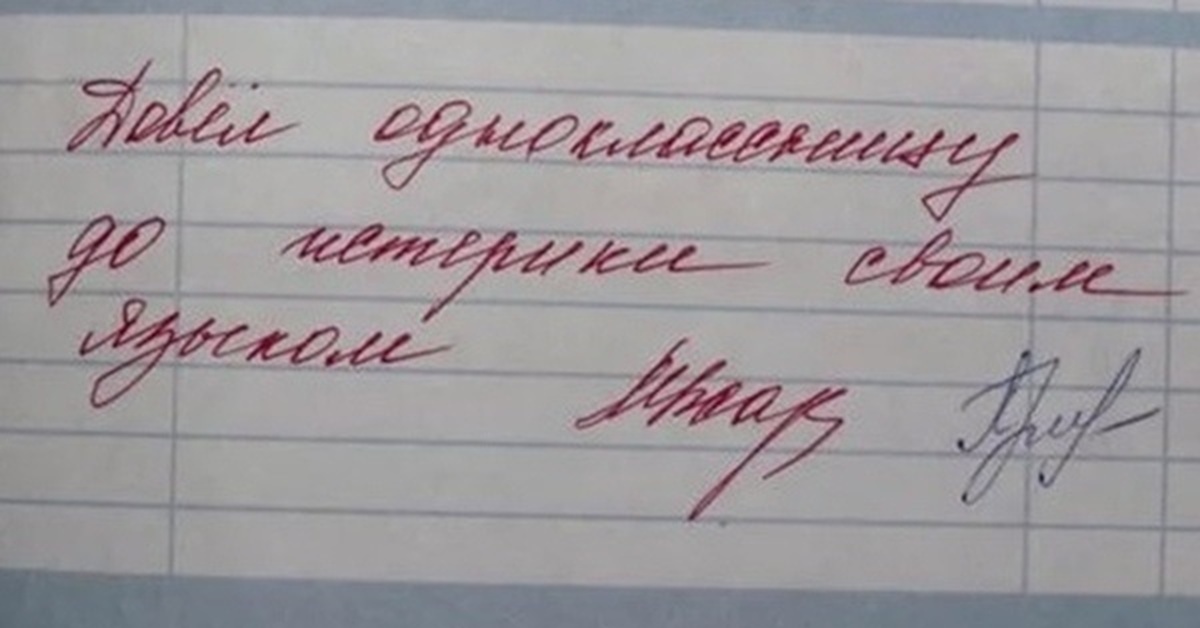 Довёл одноклассницу
до истерики своим
языком